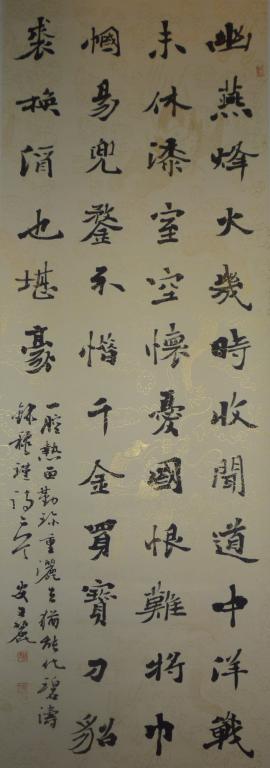 幽燕烽火幾時收聞道中洋戰
未休漆室空懷憂國恨難將巾
幗易兜鍪不惜千金買寶刀貂
裘換酒也堪豪
一腔熱血勤珍重灑去猶能化碧濤
錄秋瑾詩二首